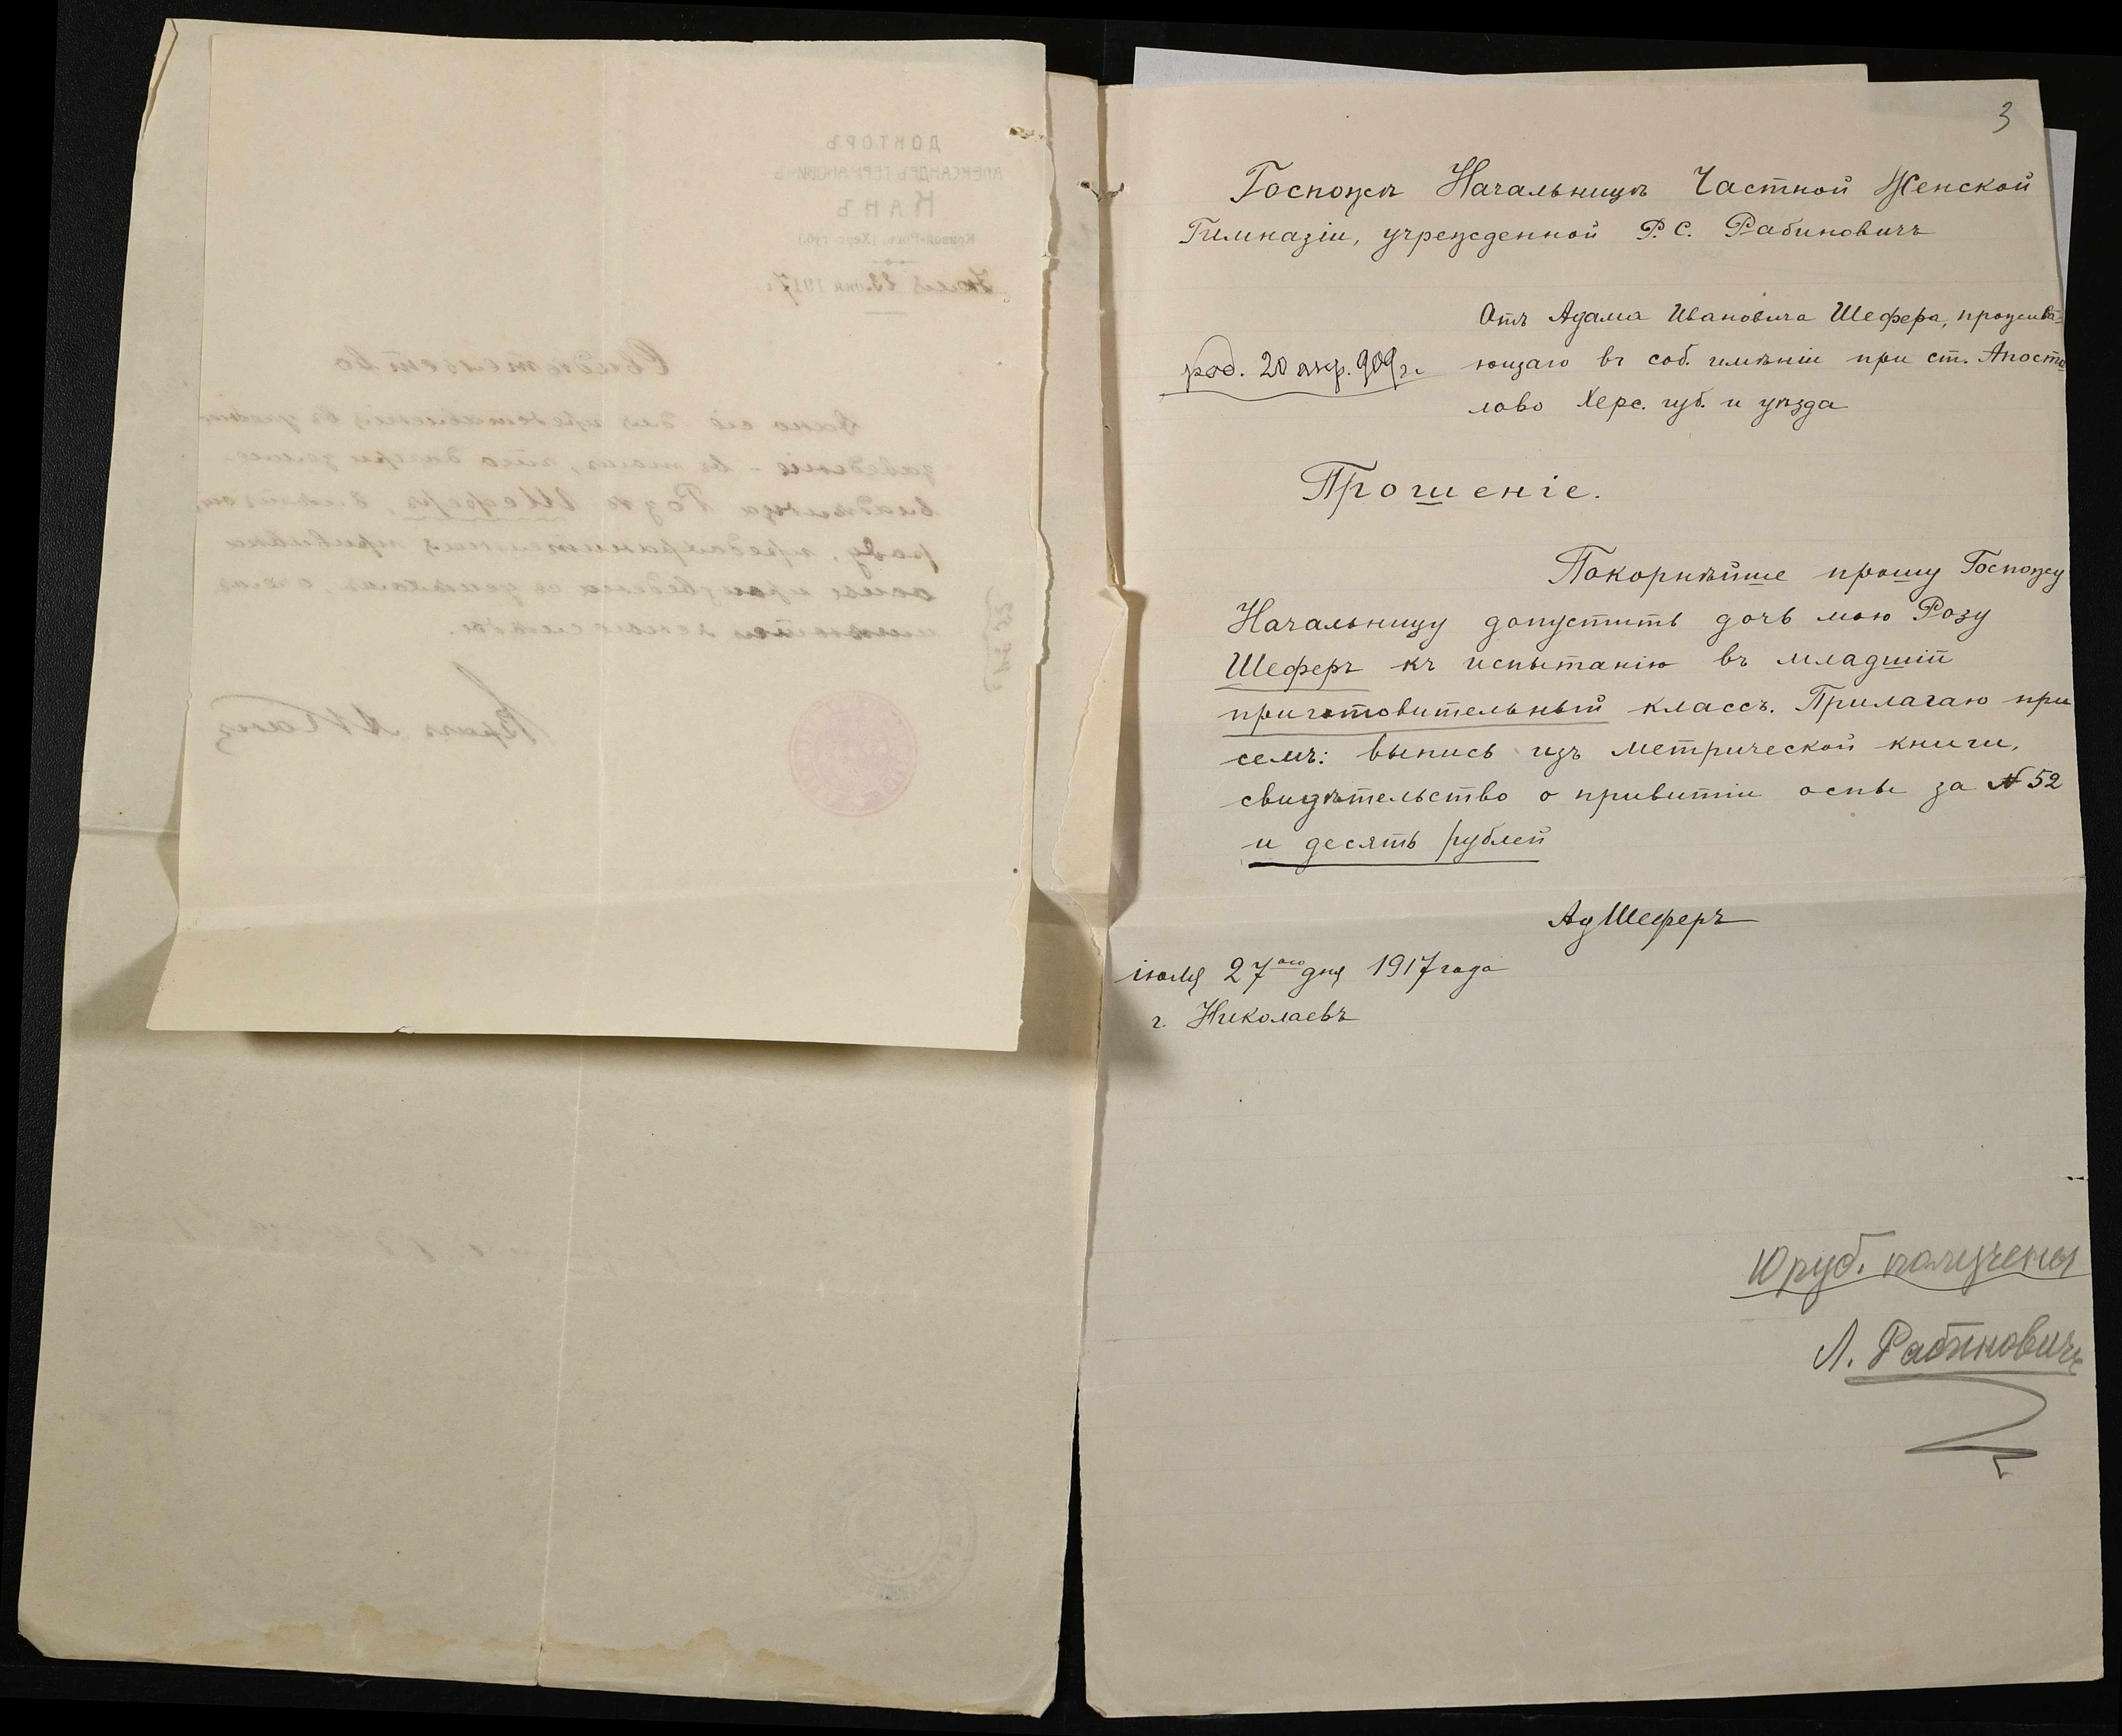 ДОКТОРЪ
АЛЕКСАНДРЪ ГЕРМАНОВИЧЪ
КАНЪ
Кривой-Рогъ, (Херс. губ.)
Іюля 23 дня 1917 г.
Свидѣтельство
Дано сіе для представленія въ учебное
заведеніе - въ томъ, что дочери земле-
владѣльца Розѣ Шеферъ,
роду, предохранительная прививка
оспы произведена съ успѣхомъ, о чемъ
Врачъ А Канъ
3
Госпожѣ Начальницѣ Частной Женской
Гимназіи, учрежденной Р. С. Рабиновичъ
Отъ Адама Ивановича Шефера, прожива-
род. 20 апр. 909 г. ющаго въ соб. имѣніи при ст. Апосто
лово Херс. губ. и уѣзда
Прошеніе.
Покорнѣйше прошу Госпожу
Начальницу допустить дочь мою Розу
Шеферъ къ испытанію въ младшій
приготовительный классъ. Прилагаю при
семъ: выпись изъ метрической книги,
свидѣтельство о привитіи оспы за № 52
и десять рублей
Ад Шеферъ
іюля 27ого дня 1917 года
г. Николаевъ
10 руб. получены
Л. Рабиновичъ